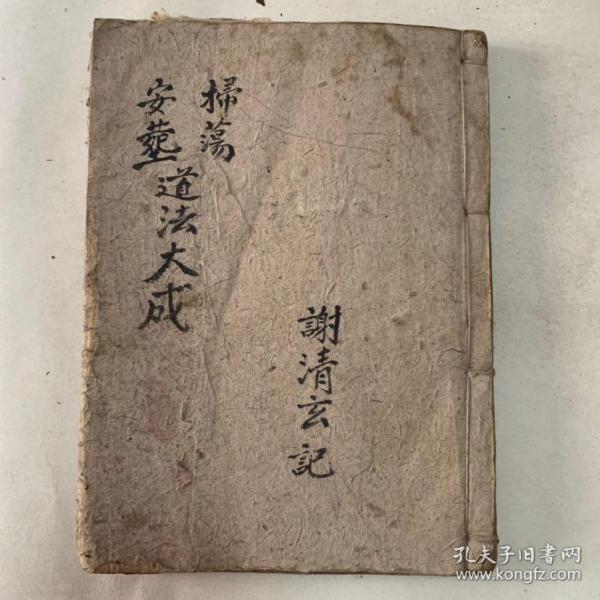 謝清玄記
掃蕩
安塟道法大成
孔夫子旧书网
www.kongfz.com